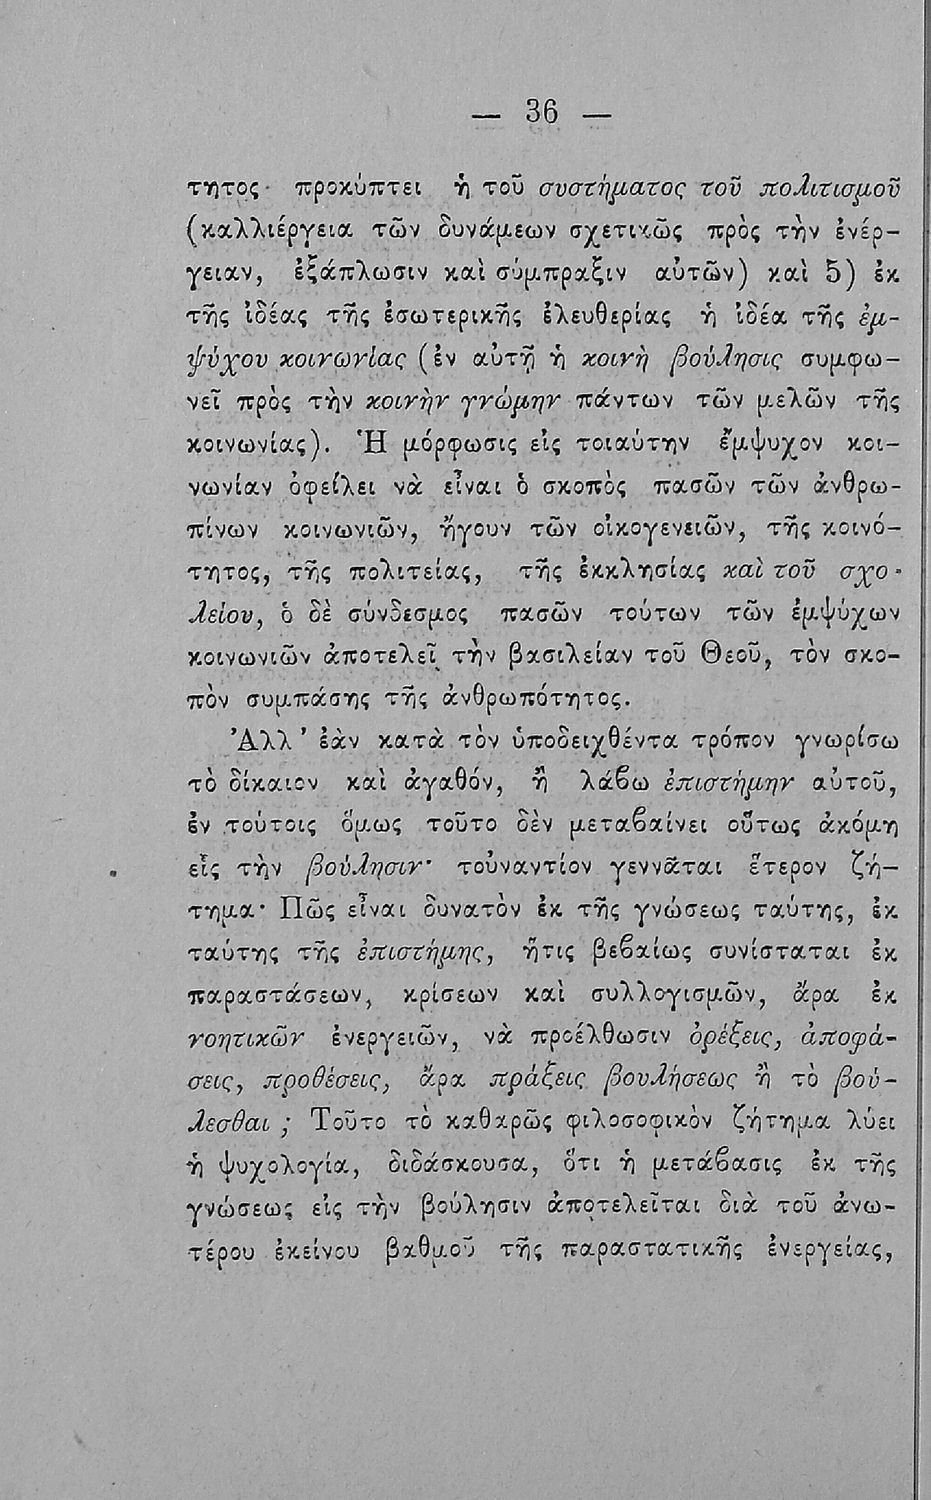 — 36 —
τητος προκύπτει ἡ τοῦ συστήματος τοῦ πολιτισμοῦ
(καλλιέργεια τῶν δυνάμεων σχετικῶς πρὸς τὴν ἐνέρ-
γειαν, ἐξάπλωσιν καὶ σύμπραξιν αὐτῶν) καὶ 5) ἐκ
τῆς ἰδέας τῆς ἐσωτερικῆς ἐλευθερίας ἡ ἰδέα τῆς ἐμ-
ψύχου κοινωνίας (ἐν αὐτῇ ἡ κοινὴ βούλησις συμφω-
νεῖ πρὸς τὴν κοινὴν γνώμην πάντων τῶν μελῶν τῆς
κοινωνίας). Ἡ μόρφωσις εἰς τοιαύτην ἔμψυχον κοι-
νωνίαν ὀφείλει νὰ εἶναι ὁ σκοπὸς πασῶν τῶν ἀνθρω-
πίνων κοινωνιῶν, ἤγουν τῶν οἰκογενειῶν, τῆς κοινό-
τητος, τῆς πολιτείας, τῆς ἐκκλησίας καὶ τοῦ σχο-
λείου, ὁ δὲ σύνδεσμος πασῶν τούτων τῶν ἐμψύχων
κοινωνιῶν ἀποτελεῖ τὴν βασιλείαν τοῦ Θεοῦ, τὸν σκο-
πὸν συμπάσης τῆς ἀνθρωπότητος.
Ἀλλ' ἐὰν κατὰ τὸν ὑποδειχθέντα τρόπον γνωρίσω
τὸ δίκαιον καὶ ἀγαθόν, ἢ λάβω ἐπιστήμην αὐτοῦ,
ἐν τούτοις ὅμως τοῦτο δὲν μεταβαίνει οὕτως ἀκόμη
εἰς τὴν βούλησιν· τοὐναντίον γεννᾶται ἕτερον ζή-
τημα· Πῶς εἶναι δυνατὸν ἐκ τῆς γνώσεως ταύτης, ἐκ
ταύτης τῆς ἐπιστήμης, ἥτις βεβαίως συνίσταται ἐκ
παραστάσεων, κρίσεων καὶ συλλογισμῶν, ἄρα ἐκ
νοητικῶν ἐνεργειῶν, νὰ προέλθωσιν ὀρέξεις, ἀποφά-
σεις, προθέσεις, ἄρα πράξεις βουλήσεως ἢ τὸ βού-
λεσθαι ; Τοῦτο τὸ καθαρῶς φιλοσοφικὸν ζήτημα λύει
ἡ ψυχολογία, διδάσκουσα, ὅτι ἡ μετάβασις ἐκ τῆς
γνώσεως εἰς τὴν βούλησιν ἀποτελεῖται διὰ τοῦ ἀνω-
τέρου ἐκείνου βαθμοῦ τῆς παραστατικῆς ἐνεργείας,